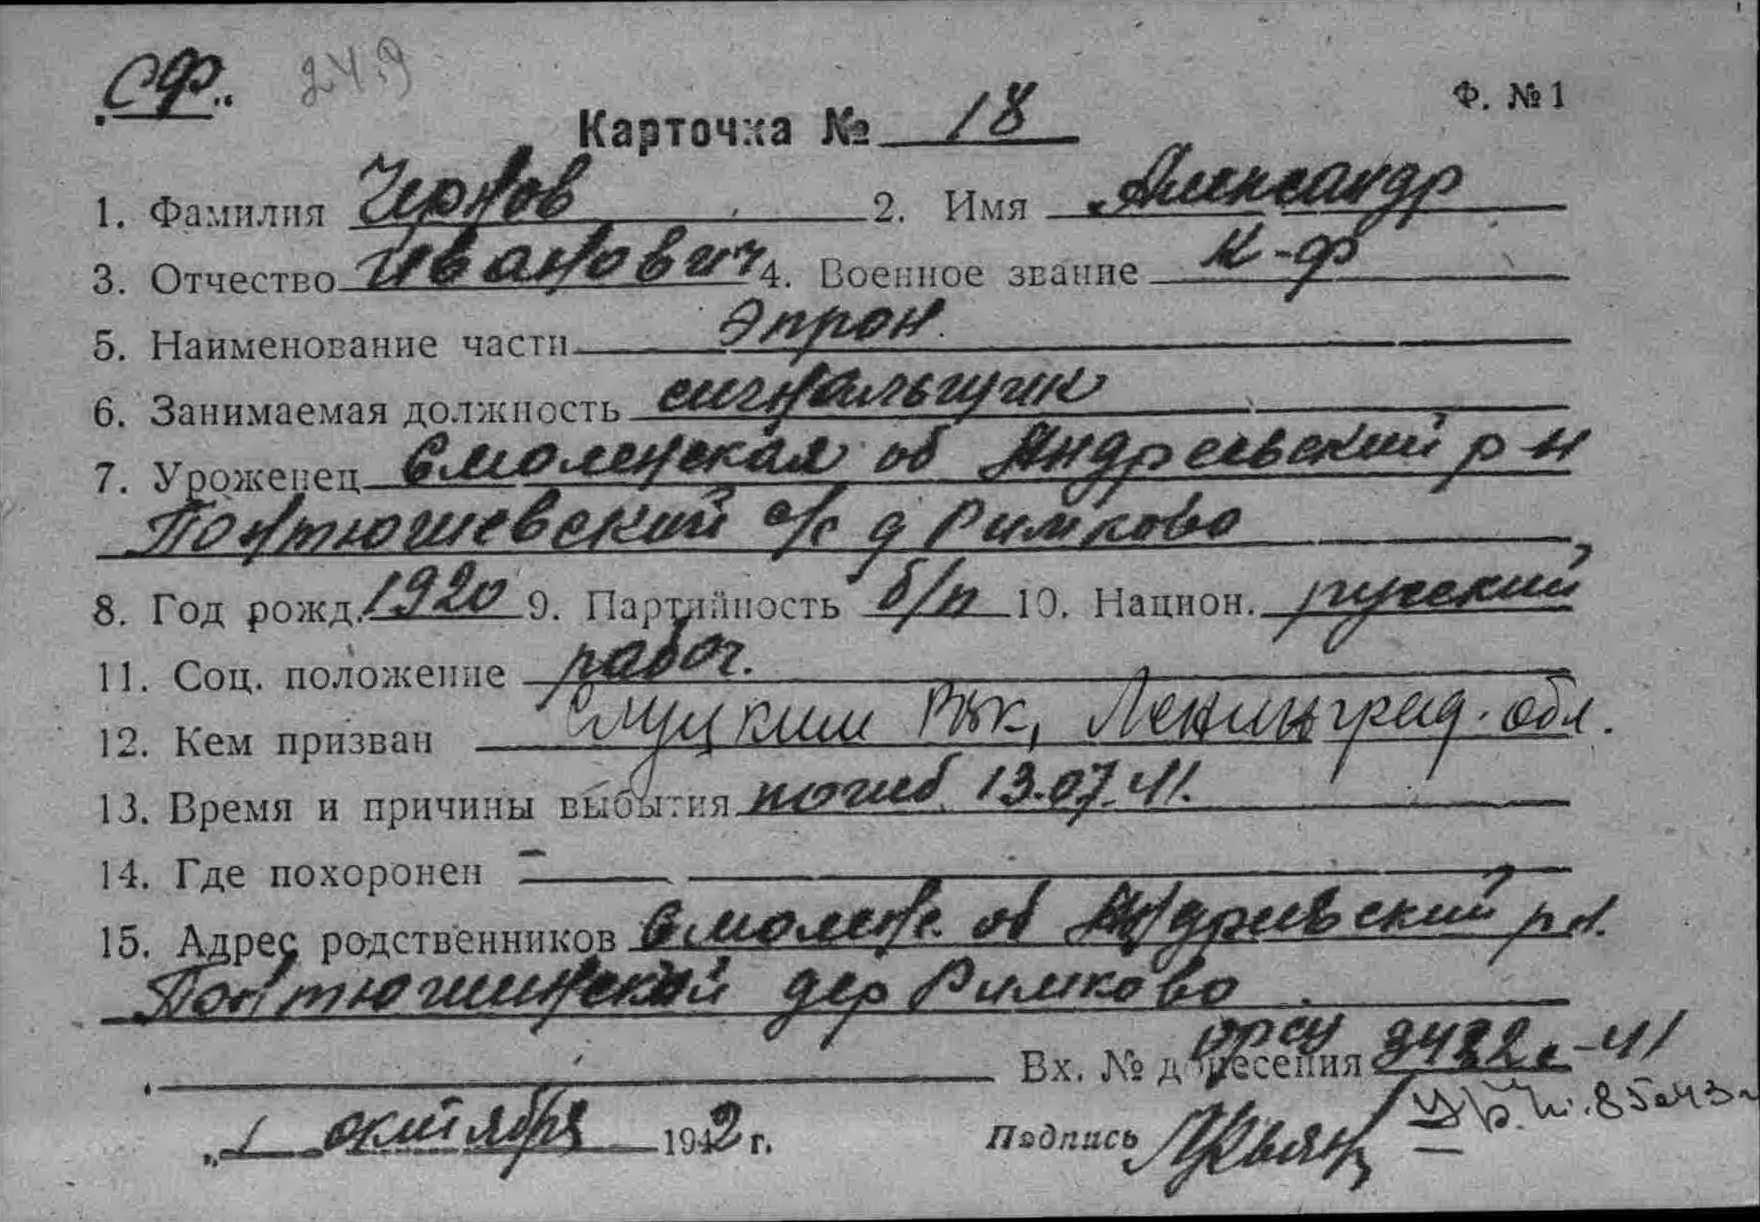 СФ. 24.9
Ф. №1
Карточка № 18
1. Фамилия Чернов 2. Имя Александр
3. Отчество Иванович 4. Военное звание к-ф
5. Наименование части Эпрон
6. Занимаемая должность сигнальщик
7. Уроженец Смоленская об Андреевский р-н
Понтюшевский с/с д Римково
8. Год рожд. 1920 9. Партийность б/п 10. Национ. русский
11. Соц. положение рабоч.
12. Кем призван Слуцким РВК, Ленинград. обл.
13. Время и причины выбытия погиб 13.07.41.
14. Где похоронен —
15. Адрес родственников Смоленс. об Андреевский р н.
Понтюшинский дер Римково
Вх. № донесения
"1 октября 1942 г. Подпись